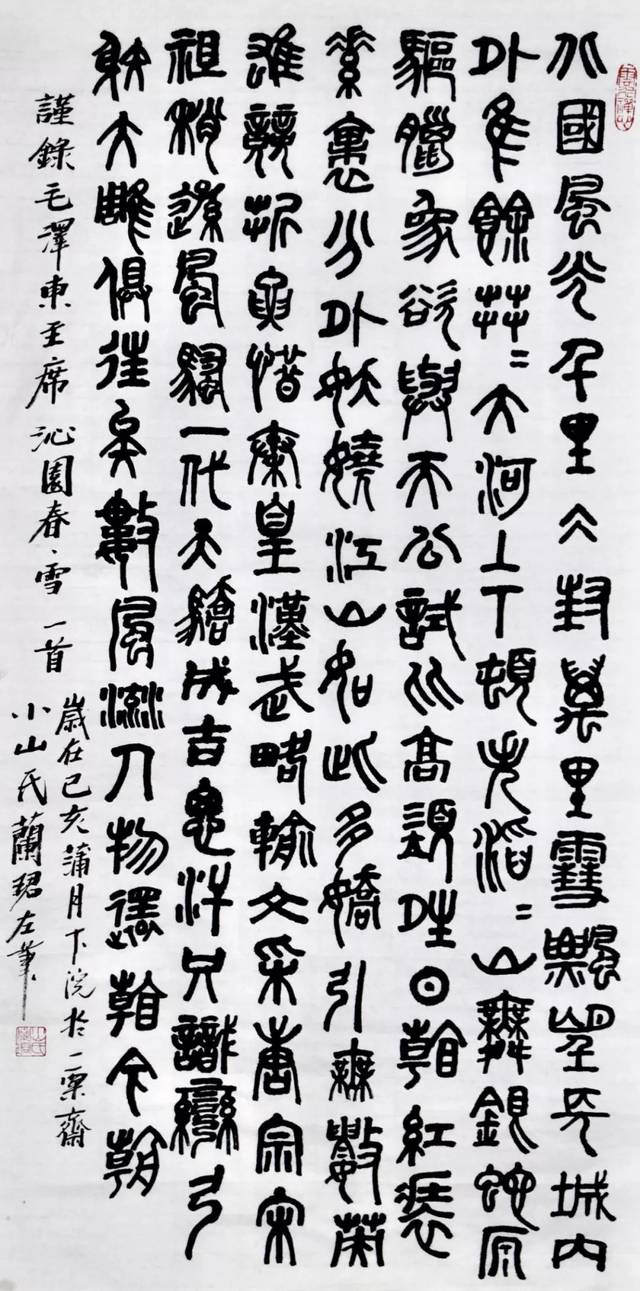 北國風光千里冰封萬里雪飄望長城內
外隹餘莽〻大河上下頓失滔〻山舞銀蛇原
驅臘象欲與天公試比高須晴日看紅裝
素裹分外妖嬈江山如此多嬌引無數英
雄競折腰惜秦皇漢武略輸文采唐宗宋
祖稍遜風騷一代天驕成吉思汗只識彎弓
射大雕俱往矣數風流人物還看今朝
謹錄毛澤東主席沁園春、雪一首
歲在己亥蒲月下浣於一粟齋
小山氏蘭珺左筆